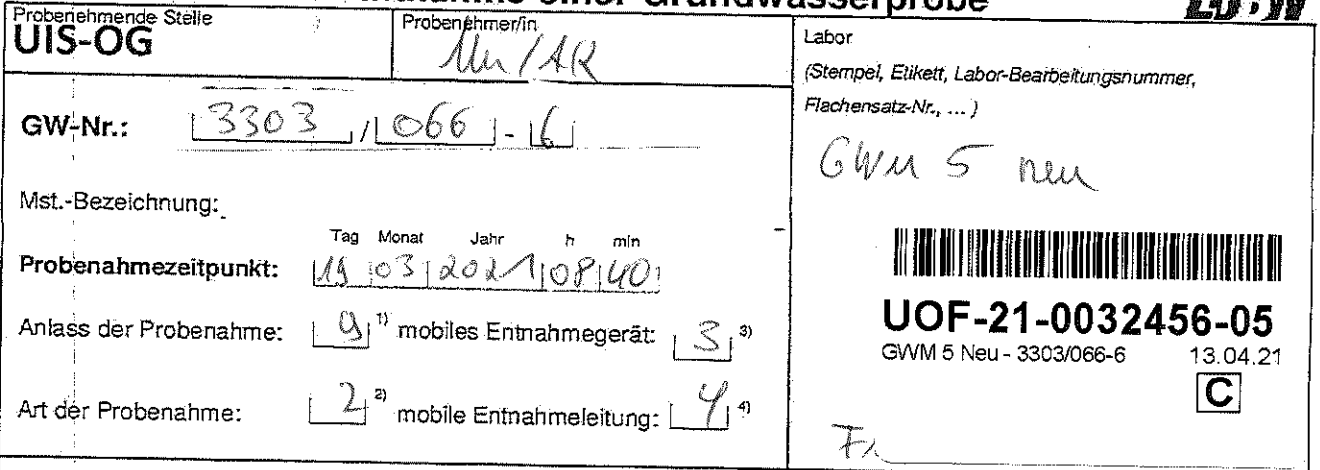 einer Grundwasserprobe
Probenehmende Stelle
UIS-OG
Probenehmer/in
GW-Nr.: 3303 / 066 - 6
Mst.-Bezeichnung:
Tag Monat Jahr h min
Probenahmezeitpunkt: 19 03 2021 08 40
Anlass der Probenahme: 9 1) mobiles Entnahmegerät: 3 3)
Art der Probenahme: 2 2) mobile Entnahmeleitung: 4 4)
Labor
(Stempel, Etikett, Labor-Bearbeitungsnummer,
Flachensatz-Nr., ... )
GWM 5 neu
UOF-21-0032456-05
GWM 5 Neu - 3303/066-6 13.04.21
C